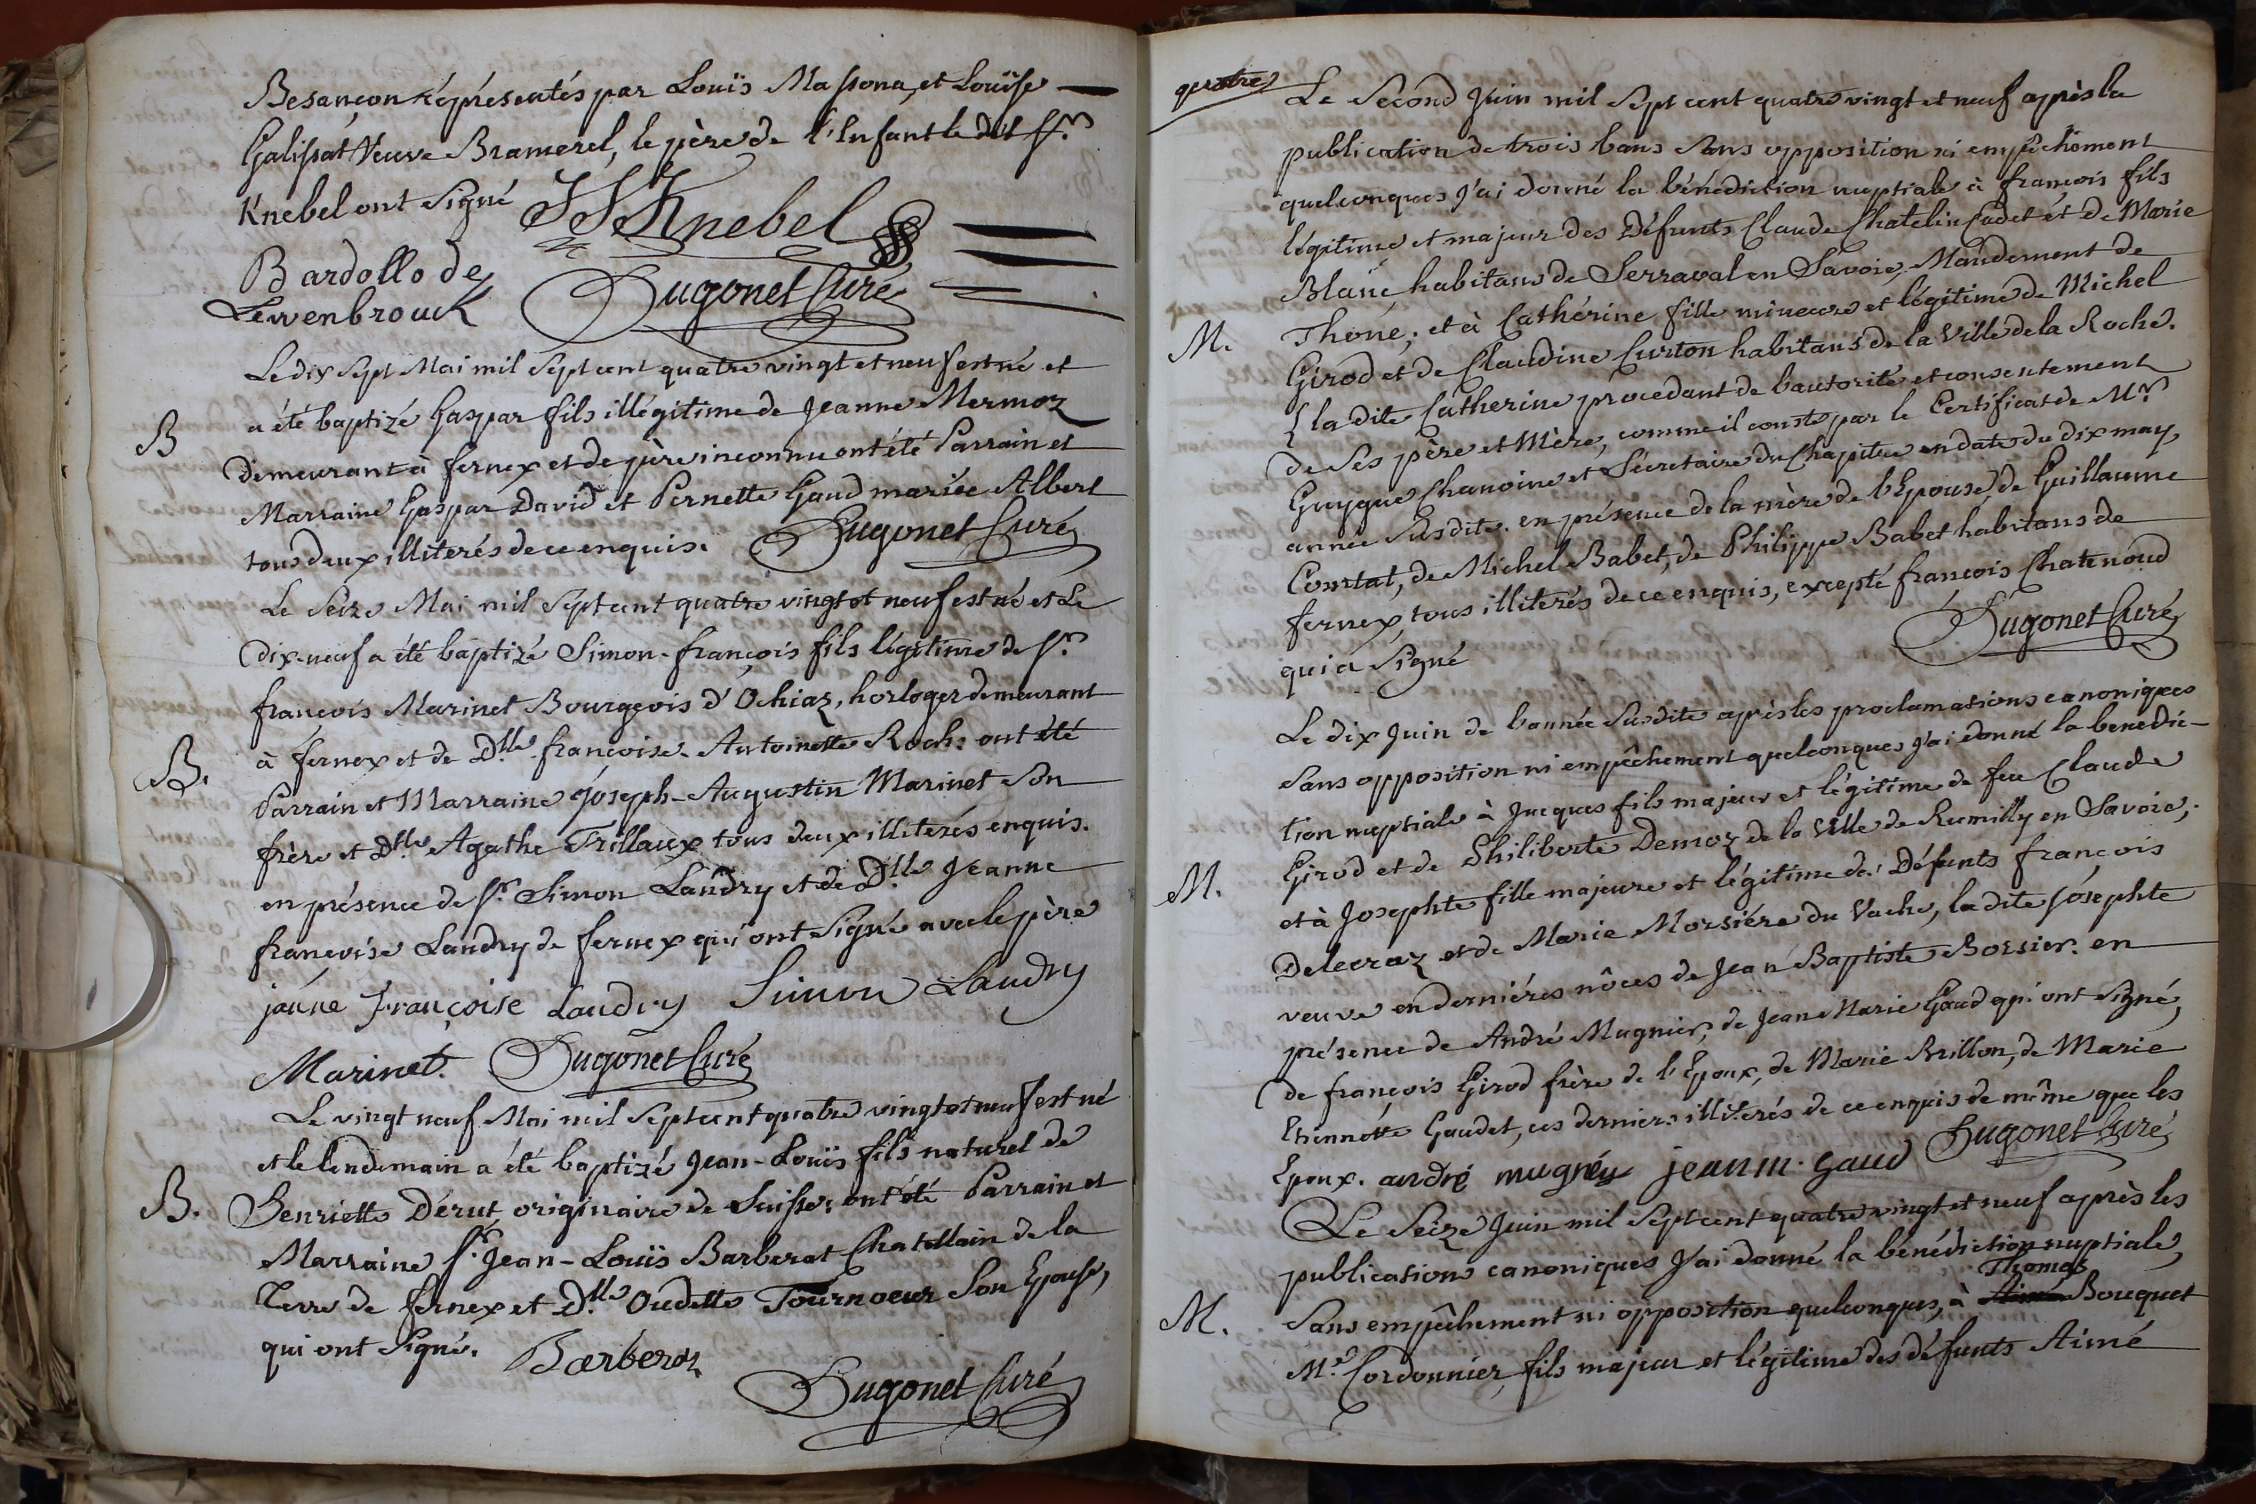 Besançon réprésentés par Louïs Massona, et Louïse
Galissat Veuve Bramerel, le père de l'Enfant le dit Sr.
Knebel ont Signé JJKnebel
Bardollo de
Lewenbrouck Dugonet Curé
Le dix Sept Mai mil Sept cent quatre vingt et neuf est né et
B
a été baptizé Gaspar fils illégitime de Jeanne Mermoz
demeurant à fernex et de père inconnu ont été Parrain et
Marraine Gaspar David et Pernette Gaud mariée Albert
tous deux illiterés de ce enquis. Dugonet Curé
Le Seize Mai mil Sept cent quatre vingt et neuf est né et Le
dix-neuf a été baptizé Simon-françois fils légitime de Sr.
françois Marinet Bourgeois d'Ochiaz, horloger demeurant
B.
à fernex et de Dlle. françoise Antoinette Roch: ont été
Parrain et Marraine Joseph-Augustin Marinet Son
frère et Dlle Agathe Trillaux tous deux illiterés enquis.
en présence de Sr. Simon Landry et de Dlle Jeanne
françoise Landry de fernex qui ont Signé avec le père
jeanne françoise Landry Simon Landry
Marinet. Dugonet Curé
Le vingt neuf Mai mil Sept cent quatre vingt et neuf est né
et le lendemain a été baptizé Jean-Louïs fils naturel de
B.
Henriette Dérut originaire de Suisse; ont été Parrain et
Marraine Sr. Jean-Louïs Barberat Chatellain de la
Terre de fernex et Dlle Oudette Tournoeur Son Epouse,
qui ont Signé. Barberaz
Dugonet Curé
quatre
Le Second Juin mil Sept cent quatre vingt et neuf après la
publication de trois bans Sans opposition ni empêchement
quelconques J'ai donné la bénédiction nuptiale à françois fils
légitime et majeur des Défunts Claude Chatelin Cadet et de Marie
Blanc habitans de Serraval en Savoie, Mandement de
M.
Thone; et à Cathérine fille mineure et légitime de Michel
Girod et de Claudine Curton habitans de la Ville de la Roche.
la dite Catherine procedant de l'autorité et consentement
de Ses père et Mère, comme il conste par le Certificat de Mr.
Gruygue Chanoine et Sécretaire du Chapitre en date du dix may
année Susdite. en présence de la mère de l'Epouse, de Guillaume
Comtat, de Michel Babet, de Philippe Babet habitans de
fernex, tous illiterés de ce enquis, excepté françois Chatenoud
qui a Signé Dugonet Curé
Le dix Juin de l'année Susdite après les proclamations canoniques
Sans opposition ni empêchement quelconques J'ai donné la bénédic-
tion nuptiale à Jacques fils majeur et légitime de feu Claude
M.
Girod et de Philiberte Demoz de la Ville de Rumilly en Savoie;
et à Josephte fille majeure et légitime des Défunts françois
Delecraz et de Marie Morsiére du Vache, la dite Josephte
veuve en dernières nôces de Jean Baptiste Borsier. en
présence de André Mugnier, de Jean Marie Gaud qui ont Signé,
de françois Girod frère de l'Epoux, de Marie Brillon, de Marie
Etiennette Gaudet, ces derniers illiterés de ce enquis de même que les
Epoux. andré mugnéy jean m. gaud Dugonet Curé
Le Seize Juin mil Sept cent quatre vingt et neuf après les
publications canoniques J'ai donné la bénédiction nuptiale,
Thomas
M.
Sans empêchement ni opposition quelconques, à Aimé Bouquet
Me. Cordonnier, fils majeur et légitime des défunts Aimé